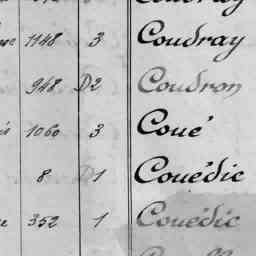 1148 3 Coudray
948 D2 Coudron
1060 3 Coué
8 D1 Couëdic
352 1 Couëdic